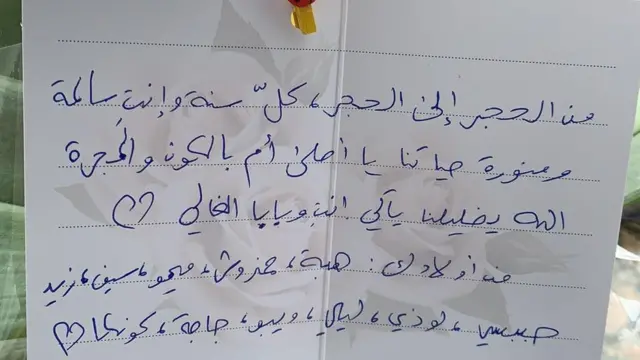 من الحجر إلى الحجر، كلّ سنة وإنتِ سالمة
ومنورة حياتنا يا أحلى أم بالكون والمجرة
الله يخليلنا ياكي انتِ وبابا الغالي ♡
من أولادك: هبة، حمزوش، ميمو، سيف، زيد
حبسي، لوذي، ليلي، ويبو، جاجة، كونكا ♡